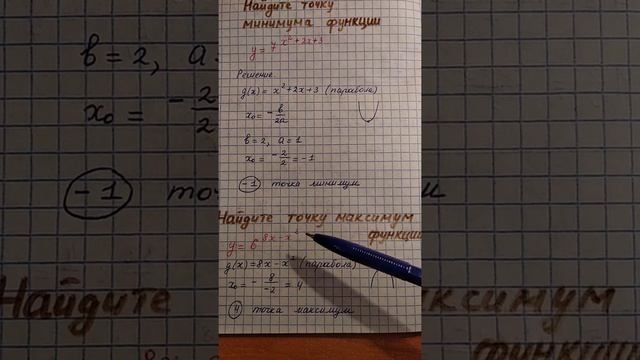 Найдите точку
минимума функции
y = 7^{x²+2x+3}
Решение.
g(x) = x²+2x+3 (парабола)
x₀ = -\frac{b}{2a}
b = 2, a = 1
x₀ = -\frac{2}{2} = -1
-1 точка минимум
Найдите точку максимум
функции
y = 6^{8x-x²}
g(x) = 8x - x² (парабола)
x₀ = -\frac{8}{-2} = 4
4 точка максимум